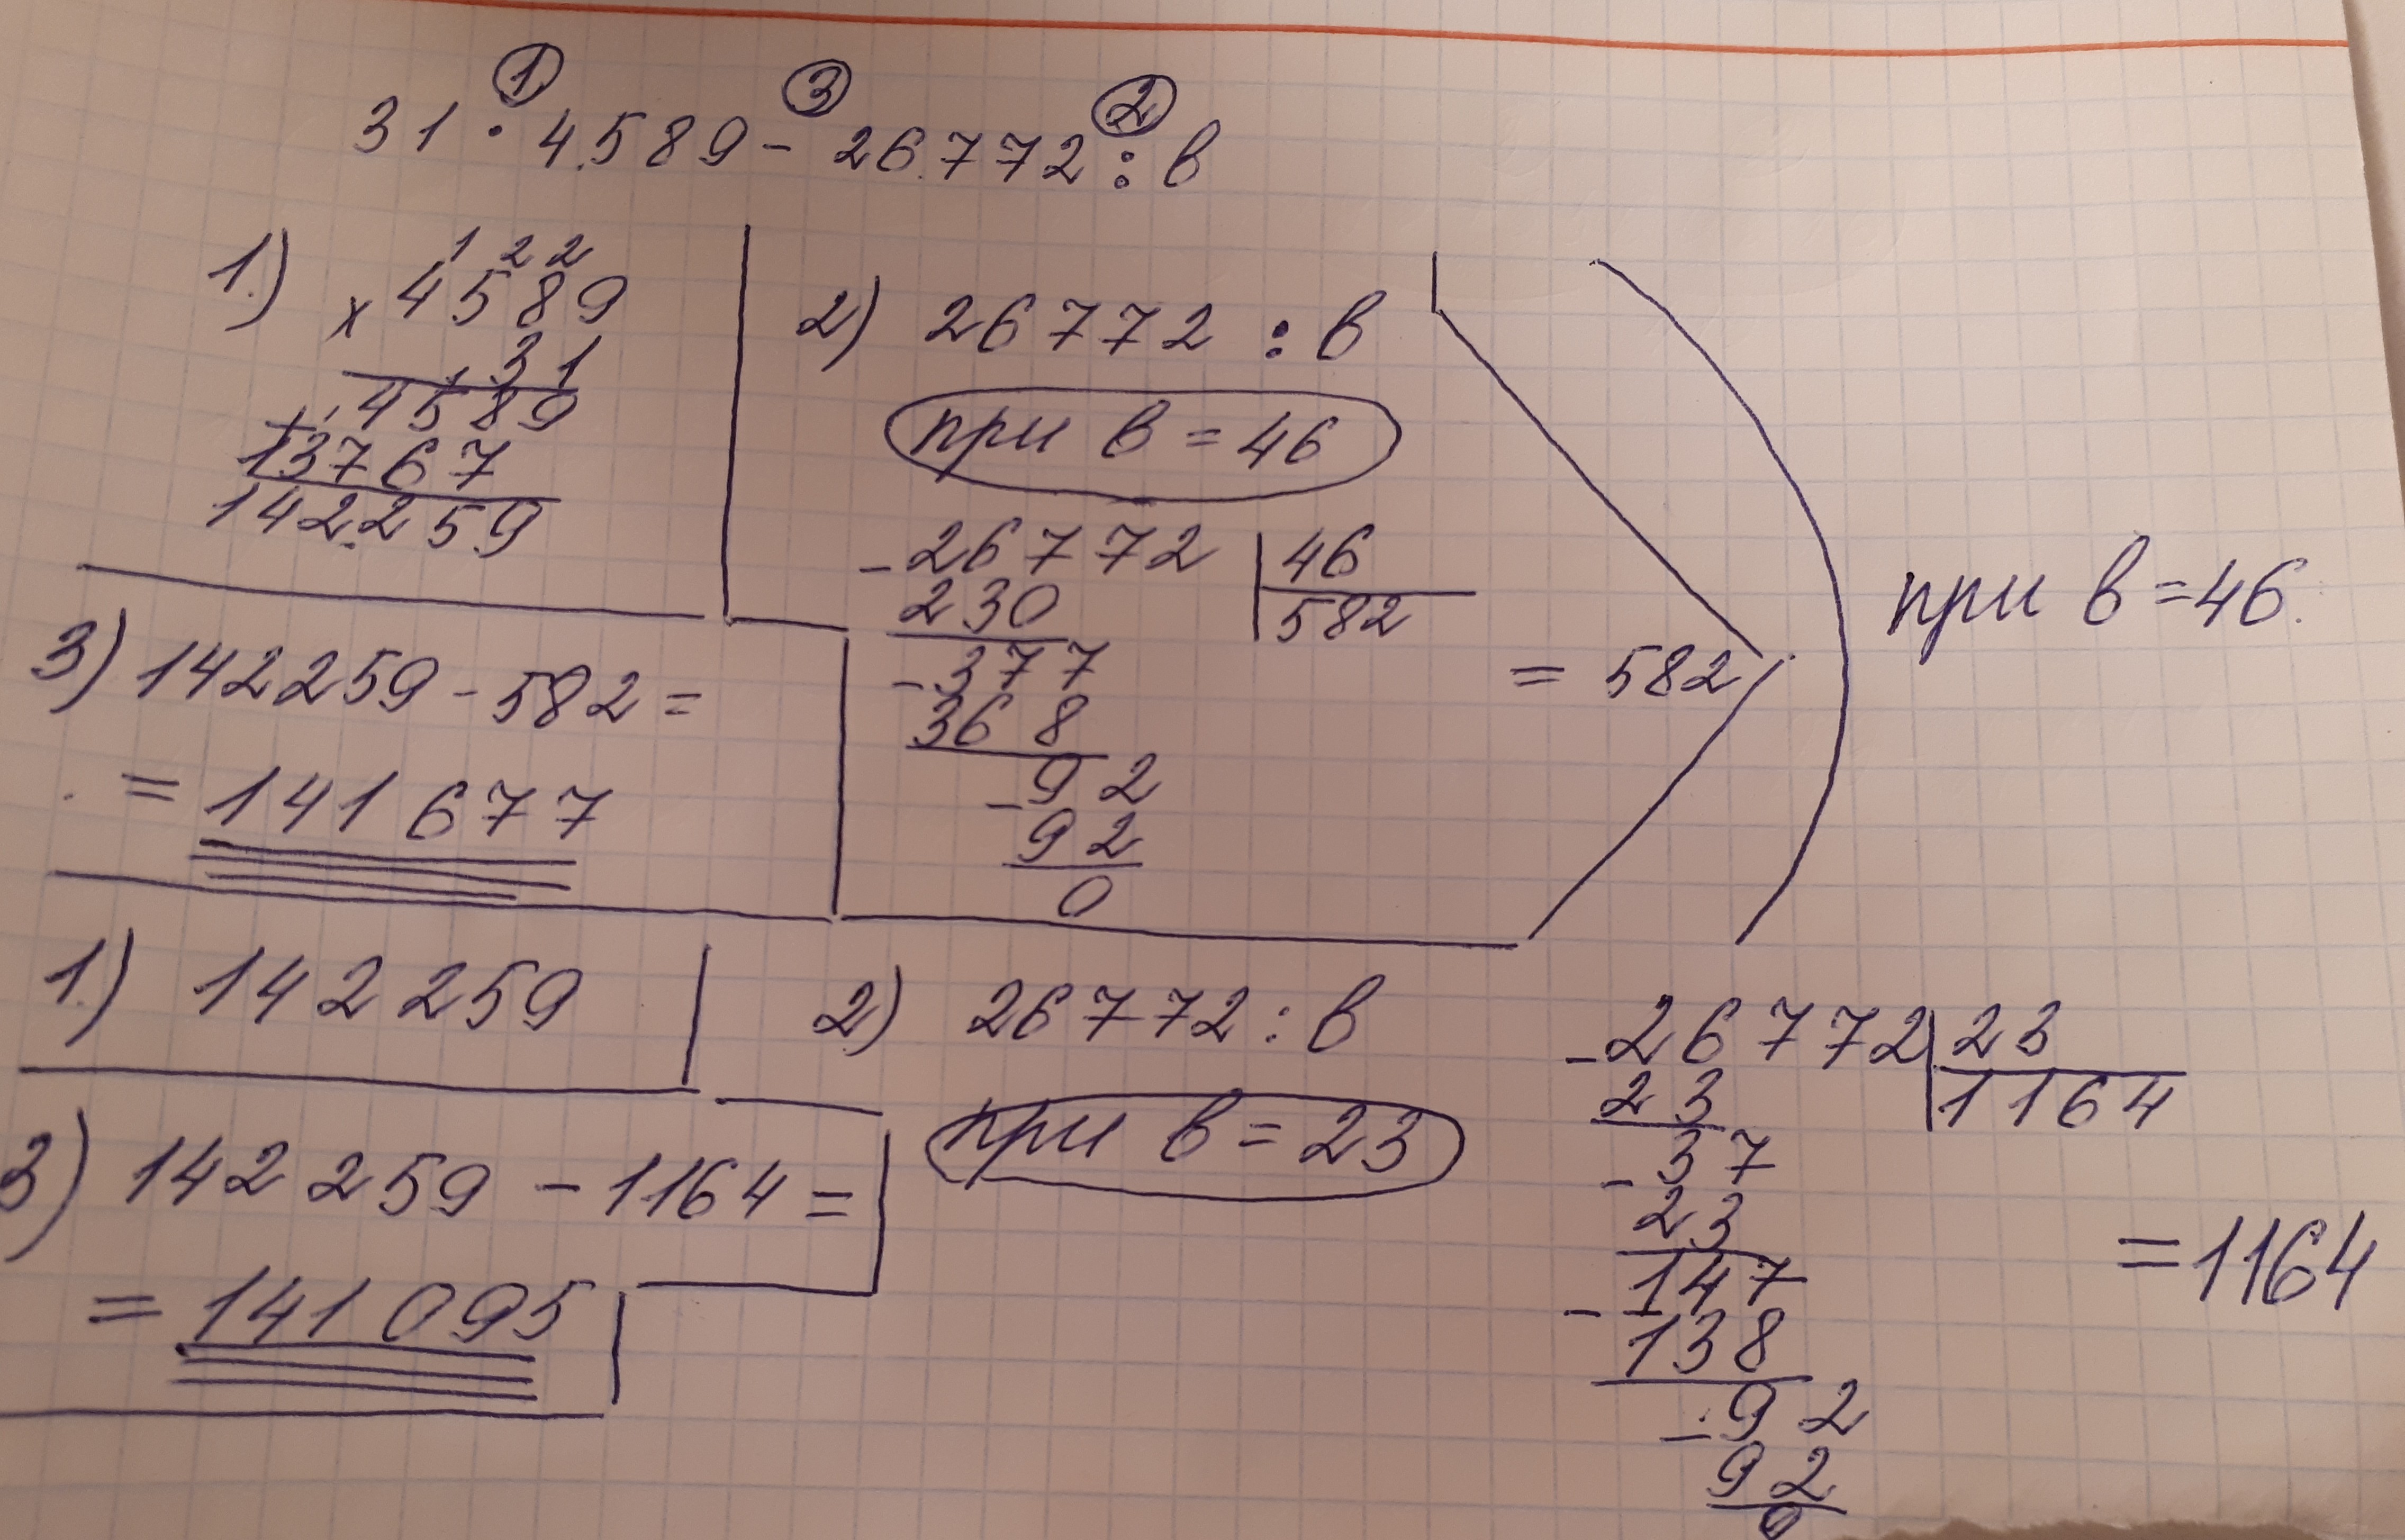 ① ③ ②
31 · 4589 - 26772 : в
1.)
1 2 2
× 4589
31
4589
+ 13767
142259
2) 26772 : в
при в = 46
- 26772 | 46
230 582
- 377
368
- 92
92
0
= 582
при в = 46.
3) 142259 - 582 =
= 141677
1.) 142259
2) 26772 : в
при в = 23
- 26772 | 23
23 1164
- 37
23
- 147
138
- 92
92
0
= 1164
3) 142259 - 1164 =
= 141095